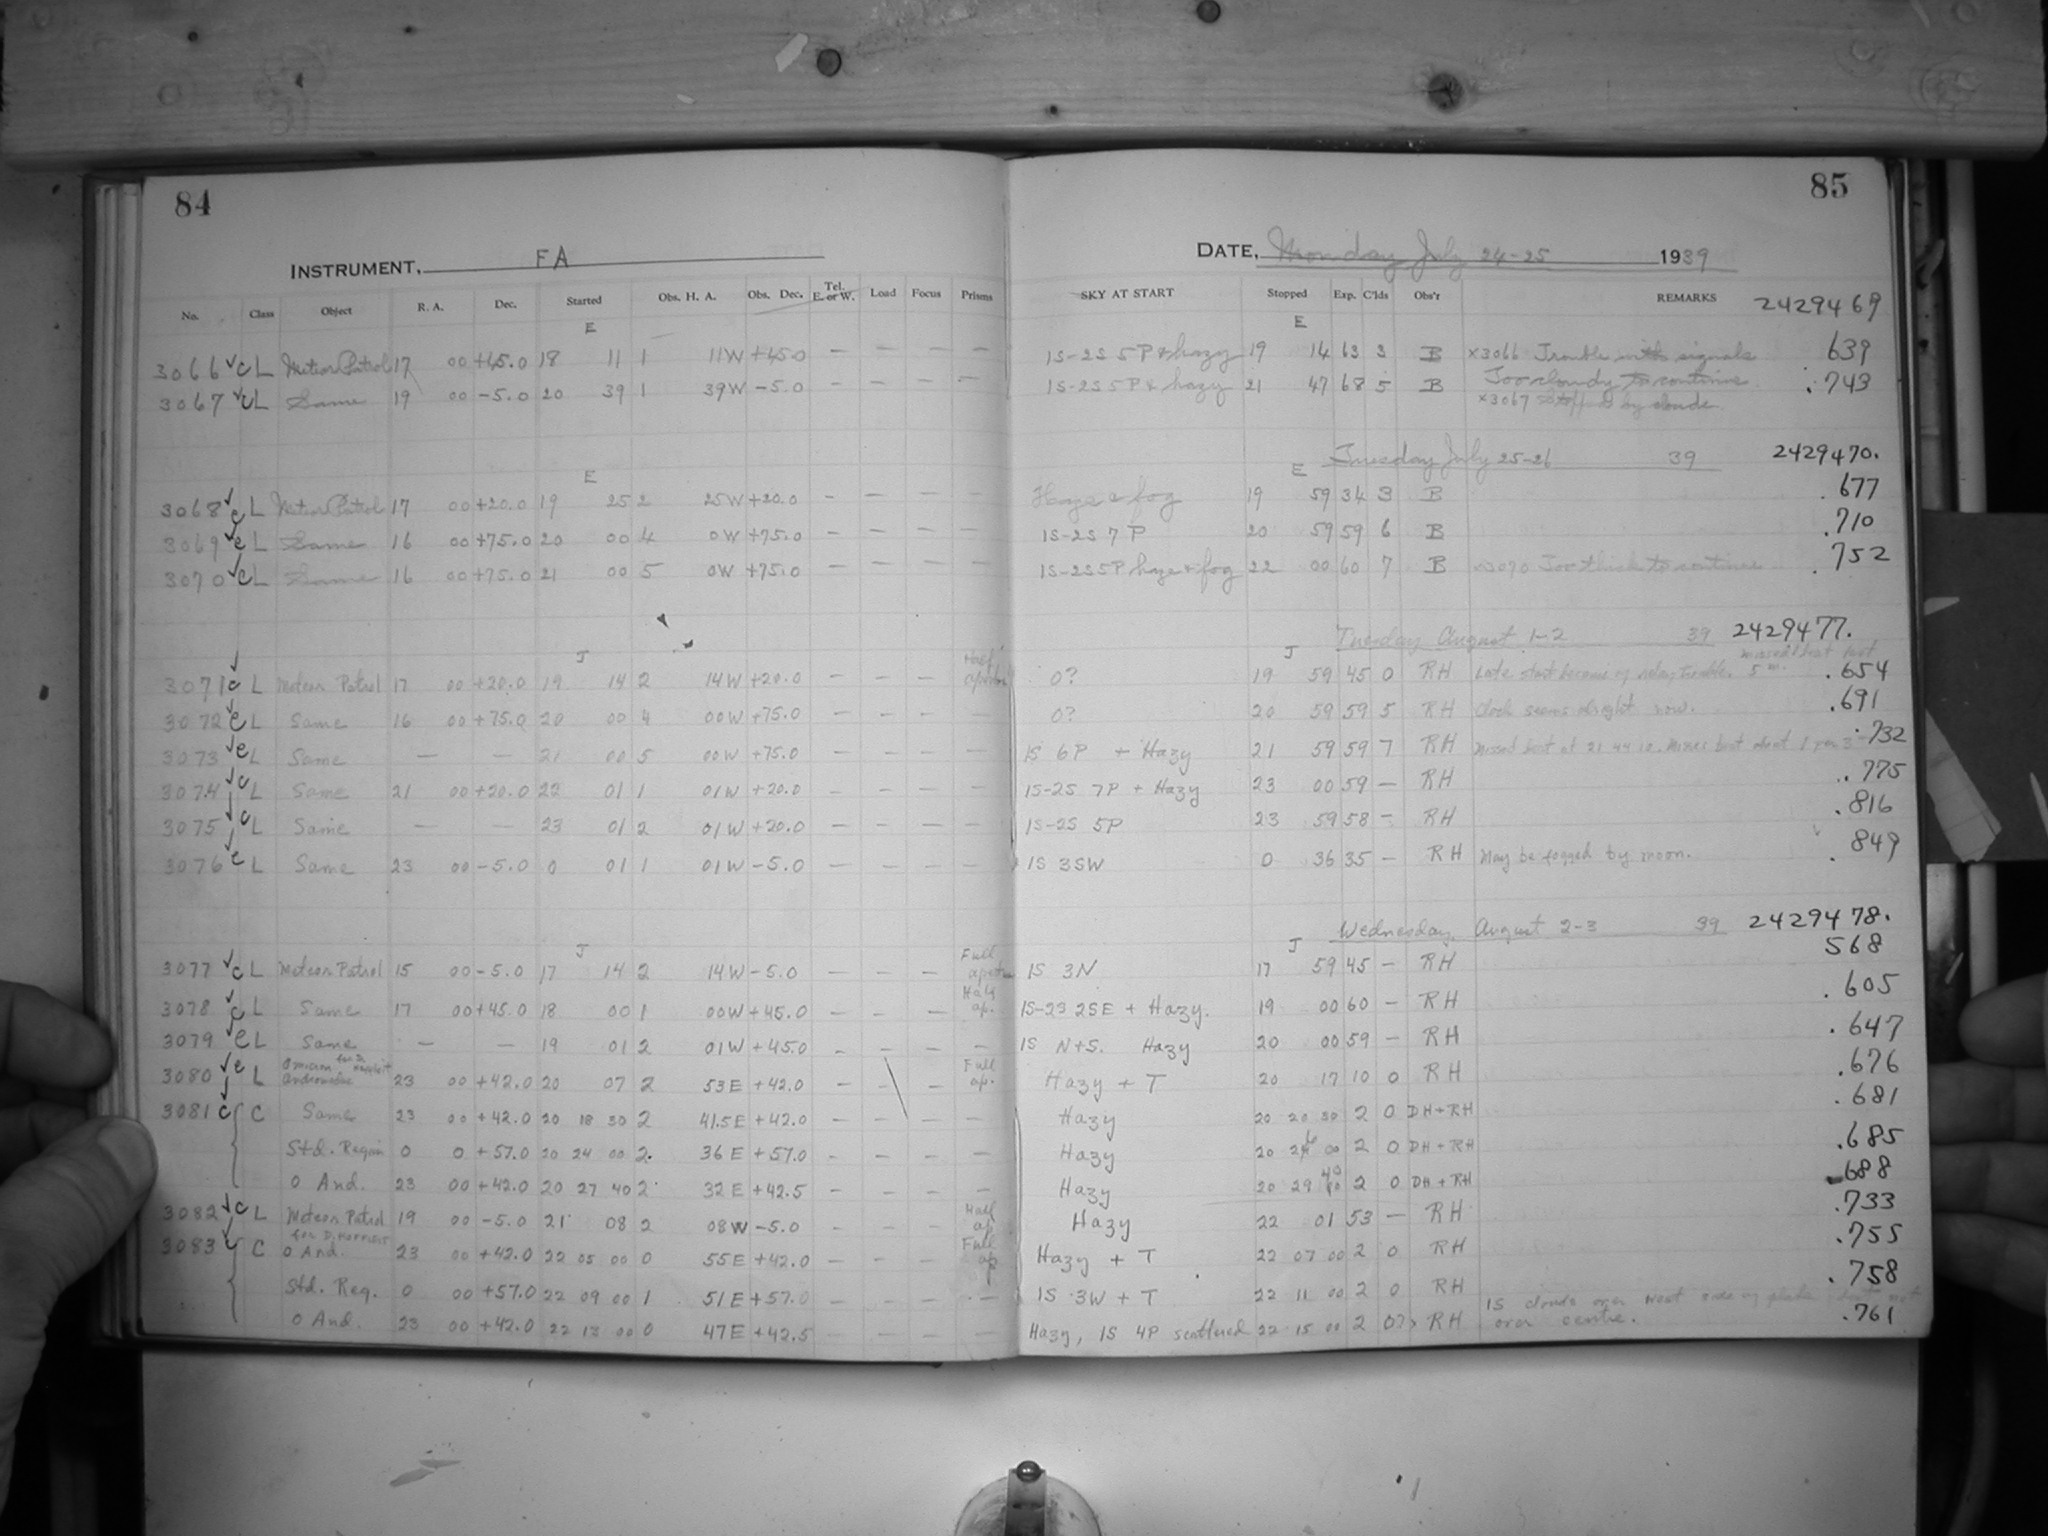 84
INSTRUMENT, FA
No. Class Object R. A. Dec. Started Obs. H. A. Obs. Dec. Tel. E. or W. Load Focus Prisms
E
3066 ✓c L Meteor Patrol 17 00 +45.0 18 11 1 11W +45.0 — — — —
3067 ✓c L Same 19 00 -5.0 20 39 1 39W -5.0 — — — —
E
3068 ✓c L Meteor Patrol 17 00 +20.0 19 25 2 25W +20.0 — — — —
3069 ✓e L Same 16 00 +75.0 20 00 4 0W +75.0 — — — —
3070 ✓c L Same 16 00 +75.0 21 00 5 0W +75.0 — — — —
J
3071 ✓c L Meteor Patrol 17 00 +20.0 19 14 2 14W +20.0 — — — Half
3072 ✓e L Same 16 00 +75.0 20 00 4 00W +75.0 — — — —
3073 ✓e L Same — — 21 00 5 00W +75.0 — — — —
3074 ✓c L Same 21 00 +20.0 22 01 1 01W +20.0 — — — —
3075 ✓c L Same — — 23 01 2 01W +20.0 — — — —
3076 ✓e L Same 23 00 -5.0 0 01 1 01W -5.0 — — — —
J
3077 ✓c L Meteor Patrol 15 00 -5.0 17 14 2 14W -5.0 — — — Full
3078 ✓c L Same 17 00 +45.0 18 00 1 00W +45.0 — — — Half ap.
3079 ✓e L Same — — 19 01 2 01W +45.0 — — — —
3080 ✓e L Omicron Andromedae for D. 23 00 +42.0 20 07 2 53E +42.0 — — — Full ap.
3081 c C Same 23 00 +42.0 20 18 30 2 41.5E +42.0 — — — —
Std. Region 0 0 +57.0 20 24 00 2. 36E +57.0 — — — —
O And. 23 00 +42.0 20 27 40 2 32E +42.5 — — — —
3082 ✓c L Meteor Patrol 19 00 -5.0 21 08 2 08W -5.0 — — — Half ap
3083 C for D. O And. 23 00 +42.0 22 05 00 0 55E +42.0 — — — Full ap
Std. Reg. 0 00 +57.0 22 09 00 1 51E +57.0 — — — —
O And. 23 00 +42.0 22 13 00 0 47E +42.5 — — — —
85
DATE, Monday July 24-25 1939
SKY AT START Stopped Exp. C'lds Obs'r REMARKS 2429469
E
1S-2S 5P & hazy 19 14 63 3 B x3066 Trouble with signals 639
Too cloudy to continue
1S-2S 5P & hazy 21 47 68 5 B .743
x3067 Stopped by clouds
Tuesday July 25-26 39 2429470.
E
Haze & fog 19 59 34 3 B .677
1S-2S 7P 20 59 59 6 B .710
1S-2S 5P haze & fog 22 00 60 7 B x3070 Too thick to continue .752
Tuesday August 1-2 39 2429477.
J
0? 19 59 45 0 RH Late start because of relay trouble. 5 m. .654
0? 20 59 59 5 RH Clock seems alright now. .691
1S 6P + Hazy 21 59 59 7 RH Missed beat at 21 44 .732
1S-2S 7P + Hazy 23 00 59 — RH .775
1S-2S 5P 23 59 58 — RH .816
1S 3SW 0 36 35 — RH May be fogged by moon. .849
Wednesday, August 2-3 39 2429478.
J
1S 3N 17 59 45 — RH 568
1S-2S 2SE + Hazy. 19 00 60 — RH .605
1S N+S. Hazy 20 00 59 — RH .647
Hazy + T 20 17 10 0 RH .676
Hazy 20 20 30 2 0 DH+RH .681
Hazy 20 26 00 2 0 DH+RH .685
Hazy 20 29 40 2 0 DH+RH .688
Hazy 22 01 53 — RH .733
Hazy + T 22 07 00 2 0 RH .755
1S 3W + T 22 11 00 2 0 RH .758
1S clouds over west side of plate but not
Hazy, 1S 4P scattered 22 15 00 2 0?? RH over centre. .761